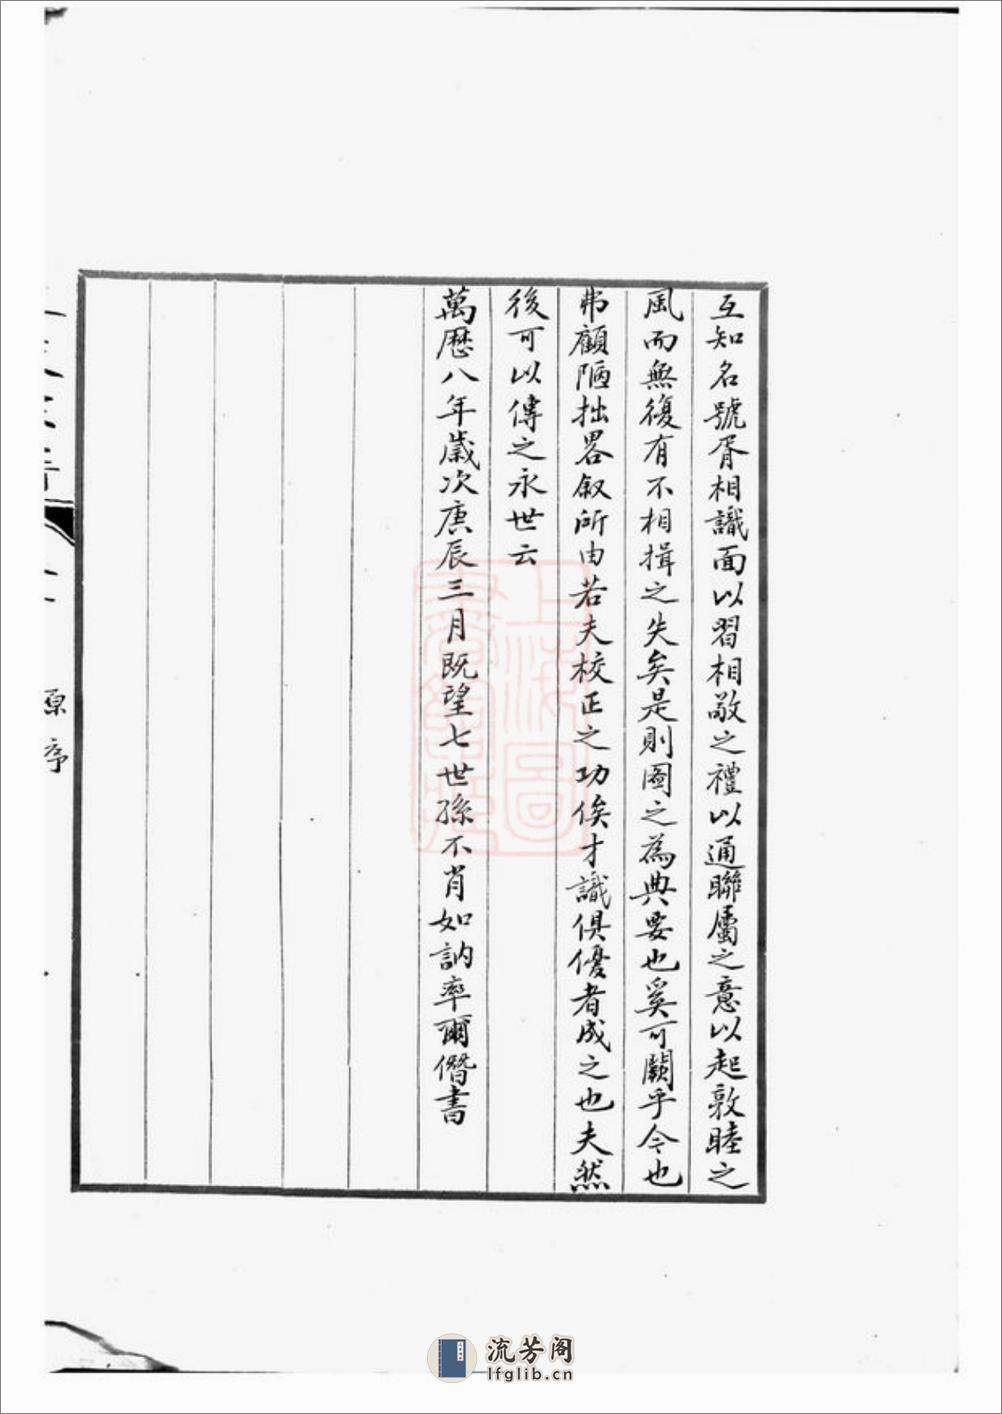 互知名號胥相識面以習相敬之禮以通聯屬之意以起敦睦之
風而無復有不相揖之失矣是則圖之為典要也奚可闕乎今也
弗顧陋拙畧敘所由若夫校正之功俟才識俱優者成之也夫然
後可以傳之永世云
萬歷八年歲次庚辰三月既望七世孫不肖如訥率爾僭書
原序
上海圖
書館藏
流芳阁
lfglib.cn